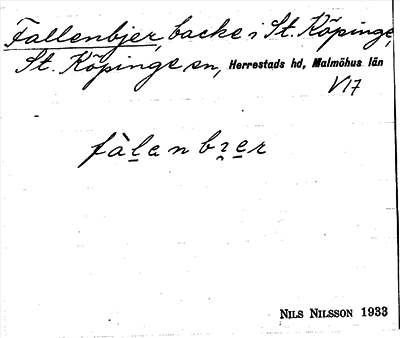 Fallenbjer, backe i St. Köpinge,
St. Köpinge sn, Herrestads hd, Malmöhus län
V17
fàlenbɿer
NILS NILSSON 1933